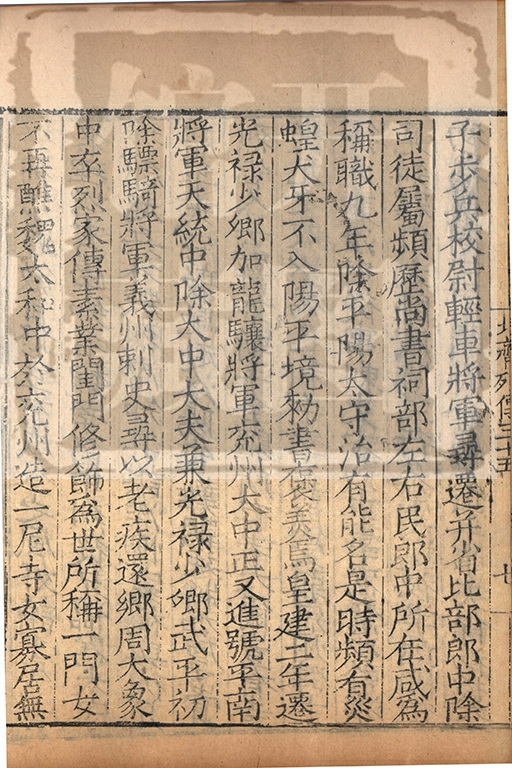 北齊列傳三十五 七
子步兵校尉輕車將軍尋遷并省比部郎中除
司徒屬頻歷尚書祠部左右民郎中所在咸為
稱職九年除平陽太守治有能名是時頻有災
蝗犬牙不入陽平境勑書褒美焉皇建二年遷
光禄少卿加龍驤將軍兖州大中正又進號平南
將軍天統中除大中大夫兼光禄少卿武平初
除驃騎將軍義州刺史尋以老疾還鄉周大象
中卒烈家傳素業閨門修飾為世所稱一門女
不再醮魏太和中於兖州造一尼寺女寡居無